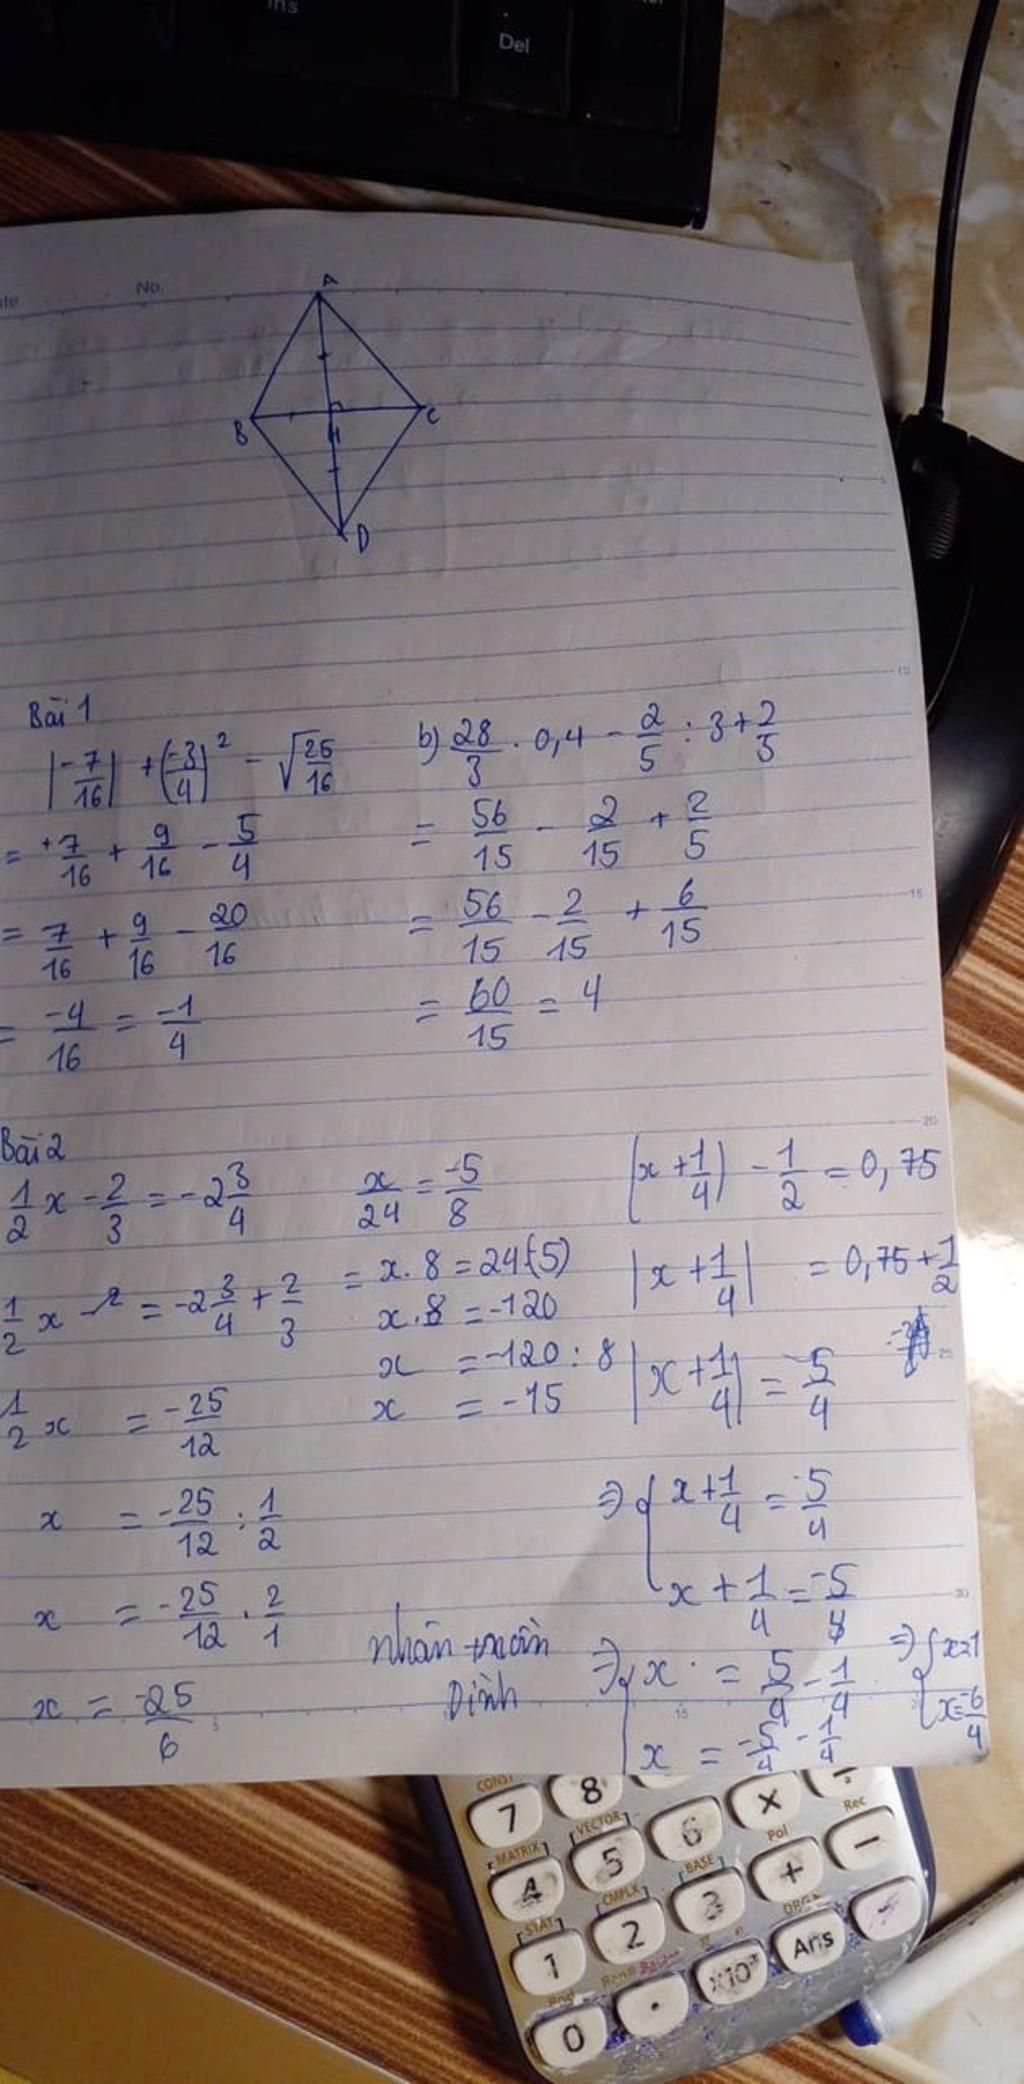 Ins
Del
No.
A
B
H
C
D
10
Bài 1
|-7/16| + (-3/4)² - √25/16
= +7/16 + 9/16 - 5/4
= 7/16 + 9/16 - 20/16
= -4/16 = -1/4
b) 28/3 . 0,4 - 2/5 : 3 + 2/5
= 56/15 - 2/15 + 2/5
= 56/15 - 2/15 + 6/15
= 60/15 = 4
15
20
Bài 2
1/2 x - 2/3 = -2 3/4
1/2 x = -2 3/4 + 2/3
1/2 x = -25/12
x = -25/12 : 1/2
x = -25/12 . 2/1
x = -25/6
x/24 = -5/8
= x . 8 = 24(-5)
x . 8 = -120
x = -120 : 8
x = -15
|x + 1/4| - 1/2 = 0,75
|x + 1/4| = 0,75 + 1/2
|x + 1/4| = 5/4
25
⇒ { x + 1/4 = 5/4
x + 1/4 = -5/4
30
⇒ { x = 5/4 - 1/4
x = -5/4 - 1/4
⇒ { x = 1
x = -6/4
5
15
CONST
7
8
×
÷
MATRIX
VECTOR
Pol
Rec
4
5
6
+
-
STAT
CMPLX
BASE
DRG▸
1
2
3
Ans
=
Rnd
Ran#
0
.
×10ˣ